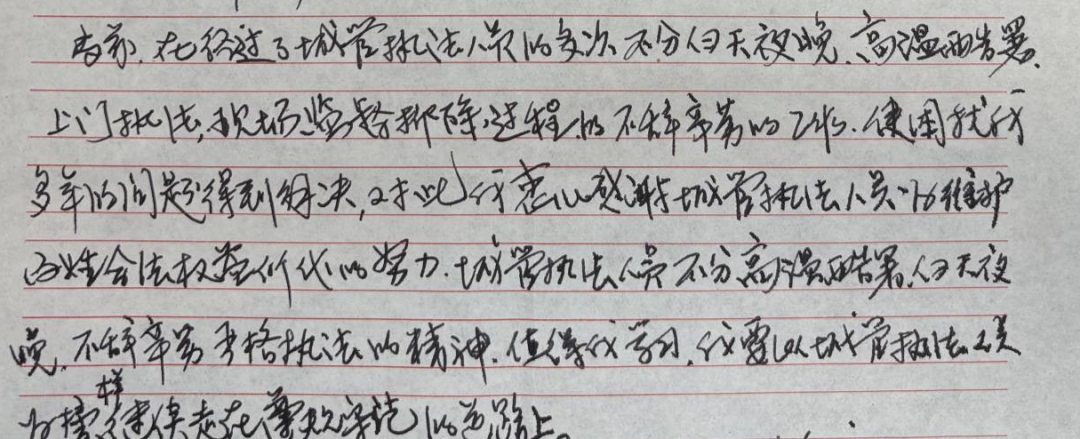 在经过了城管执法人员的多次不分白天夜晚、高温酷暑、
上门执法,现场监督拆除过程的不辞辛劳的工作.使困扰我
多年的问题得到解决,对此我衷心感谢城管执法人员为维护
百姓合法权益所付出的努力.城管执法人员不分高温酷暑、白天夜
晚,不辞辛劳严格执法的精神.值得我学习,我要以城管执法人员
为榜样继续走在遵规守法的道路上。